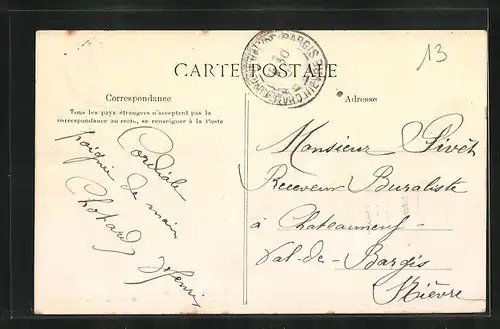 13
CARTE POSTALE
Correspondance
Tous les pays étrangers n'acceptent pas la
correspondance au recto, se renseigner à la Poste
Cordiale
poignée de main
Chotard Henri
Adresse
Monsieur Pivet
Receveur Buraliste
à Chateauneuf-
Val-de-Bargis
Nièvre